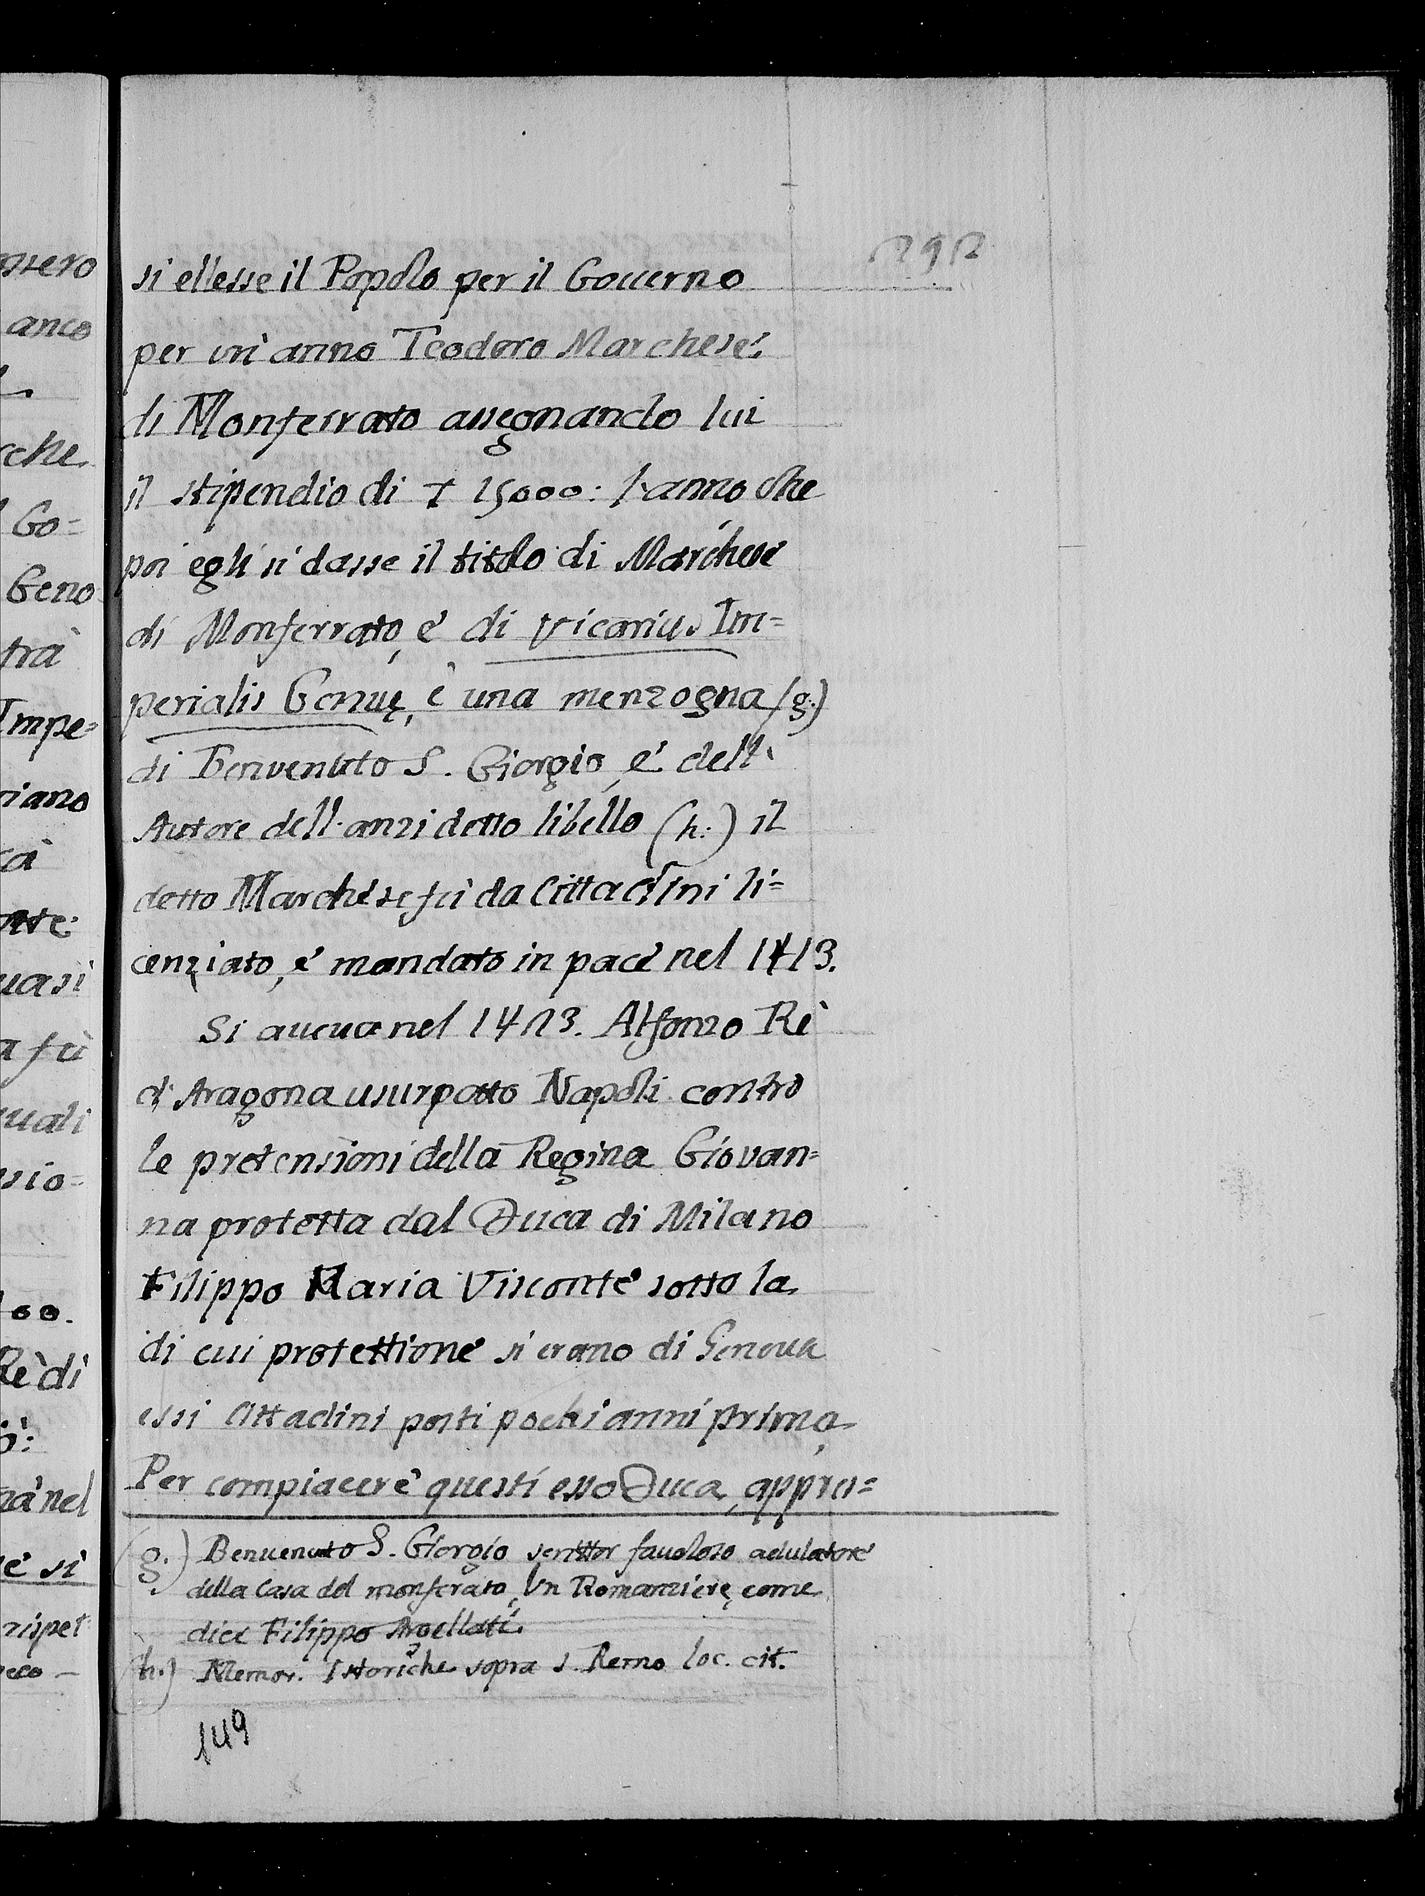 si ellesse il Popolo per il Gouerno
per un'anno Teodoro Marchese
di Monferrato assegnando lui
il stipendio di 15000: l'anno che
poi egli si dasse il titolo di Marchese
di Monferrato, e' di vicarius Im=
perialis Genuę, è una menzogna (g.)
di Benvenuto S. Giorgio, e' dell'
Autore dell'anzidetto libello (h.) il
detto Marchese fù da Cittadini li=
cenziato, e' mandato in pace nel 1413.
Si aueua nel 1423. Alfonzo Rè
d'Aragona usurpatto Napoli contro
le pretensioni della Regina Giovan=
na protetta dal Duca di Milano
Filippo Maria Visconte sotto la
di cui protettione si erano di Genoua
essi Cittadini posti pochi anni prima,
Per compiacere questi esso Duca, appro=
(g.) Benuenuto S. Giorgio scrittor fauoloso adulatore
della Casa del monferato, Un Romanziere, come
dice Filippo Argellati.
(h.) Memor. Istoriche sopra S. Remo loc. cit.
149
osero
anco
che
Go=
Geno
trà
Impe=
riano
uasi
a fù
uali
sio=
00.
Rè di
nà nel
e' si
rispet